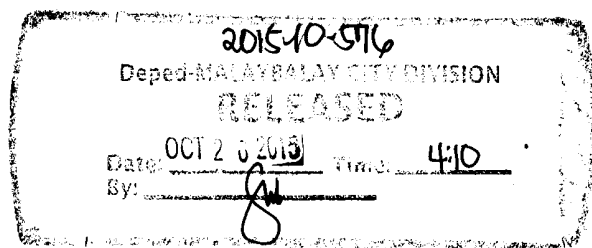 2015-10-576
Deped-MALAYBALAY CITY DIVISION
RELEASED
Date: OCT 2 2015 Time: 4:10
By: